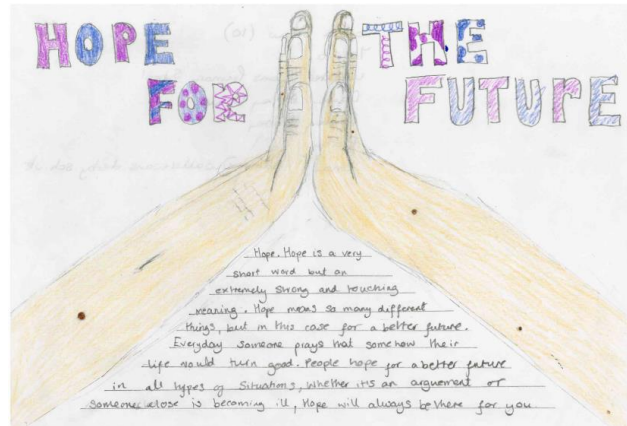 HOPE THE
FOR FUTURE
Hope. Hope is a very
short word but an
extremely strong and touching
meaning. Hope means so many different
things, but in this case for a better future.
Everyday someone prays that somehow their
life would turn good. People hope for a better future
in all types of situations, whether its an arguement or
someone close is becoming ill, Hope will always be there for you